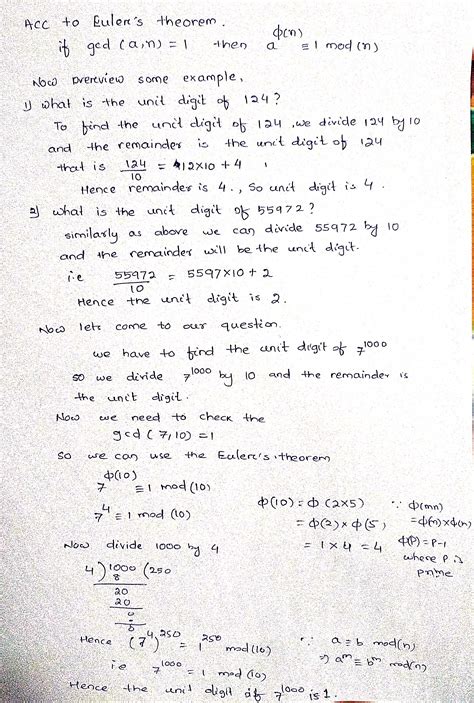 Acc to Euler's theorem.
if gcd (a,n) = 1 then a^ϕ(n) ≡ 1 mod (n)
Now preveiview some example,
1) what is the unit digit of 124?
To find the unit digit of 124, we divide 124 by 10
and the remainder is the unit digit of 124
that is 124/10 = 12×10 + 4
Hence remainder is 4., So unit digit is 4.
2) what is the unit digit of 55972?
similarly as above we can divide 55972 by 10
and the remainder will be the unit digit.
i.e 55972/10 = 5597×10 + 2
Hence the unit digit is 2.
Now lets come to our question.
we have to find the unit digit of 7^1000
so we divide 7^1000 by 10 and the remainder is
the unit digit.
Now we need to check the
gcd (7,10) = 1
So we can use the Euler's theorem
7^ϕ(10) ≡ 1 mod (10)
7^4 ≡ 1 mod (10)
ϕ(10) = ϕ (2×5)
= ϕ(2) × ϕ(5)
= 1 × 4 = 4
∵ ϕ(mn)
= ϕ(m)×ϕ(n)
ϕ(P) = P-1
where P is
prime
Now divide 1000 by 4
4) 1000 (250
8
20
20
0
0
Hence (7^4)^250 = 1^250 mod (10)
i.e 7^1000 = 1 mod (10)
∵ a ≡ b mod(n)
⇒ a^m ≡ b^m mod(n)
Hence the unit digit of 7^1000 is 1.